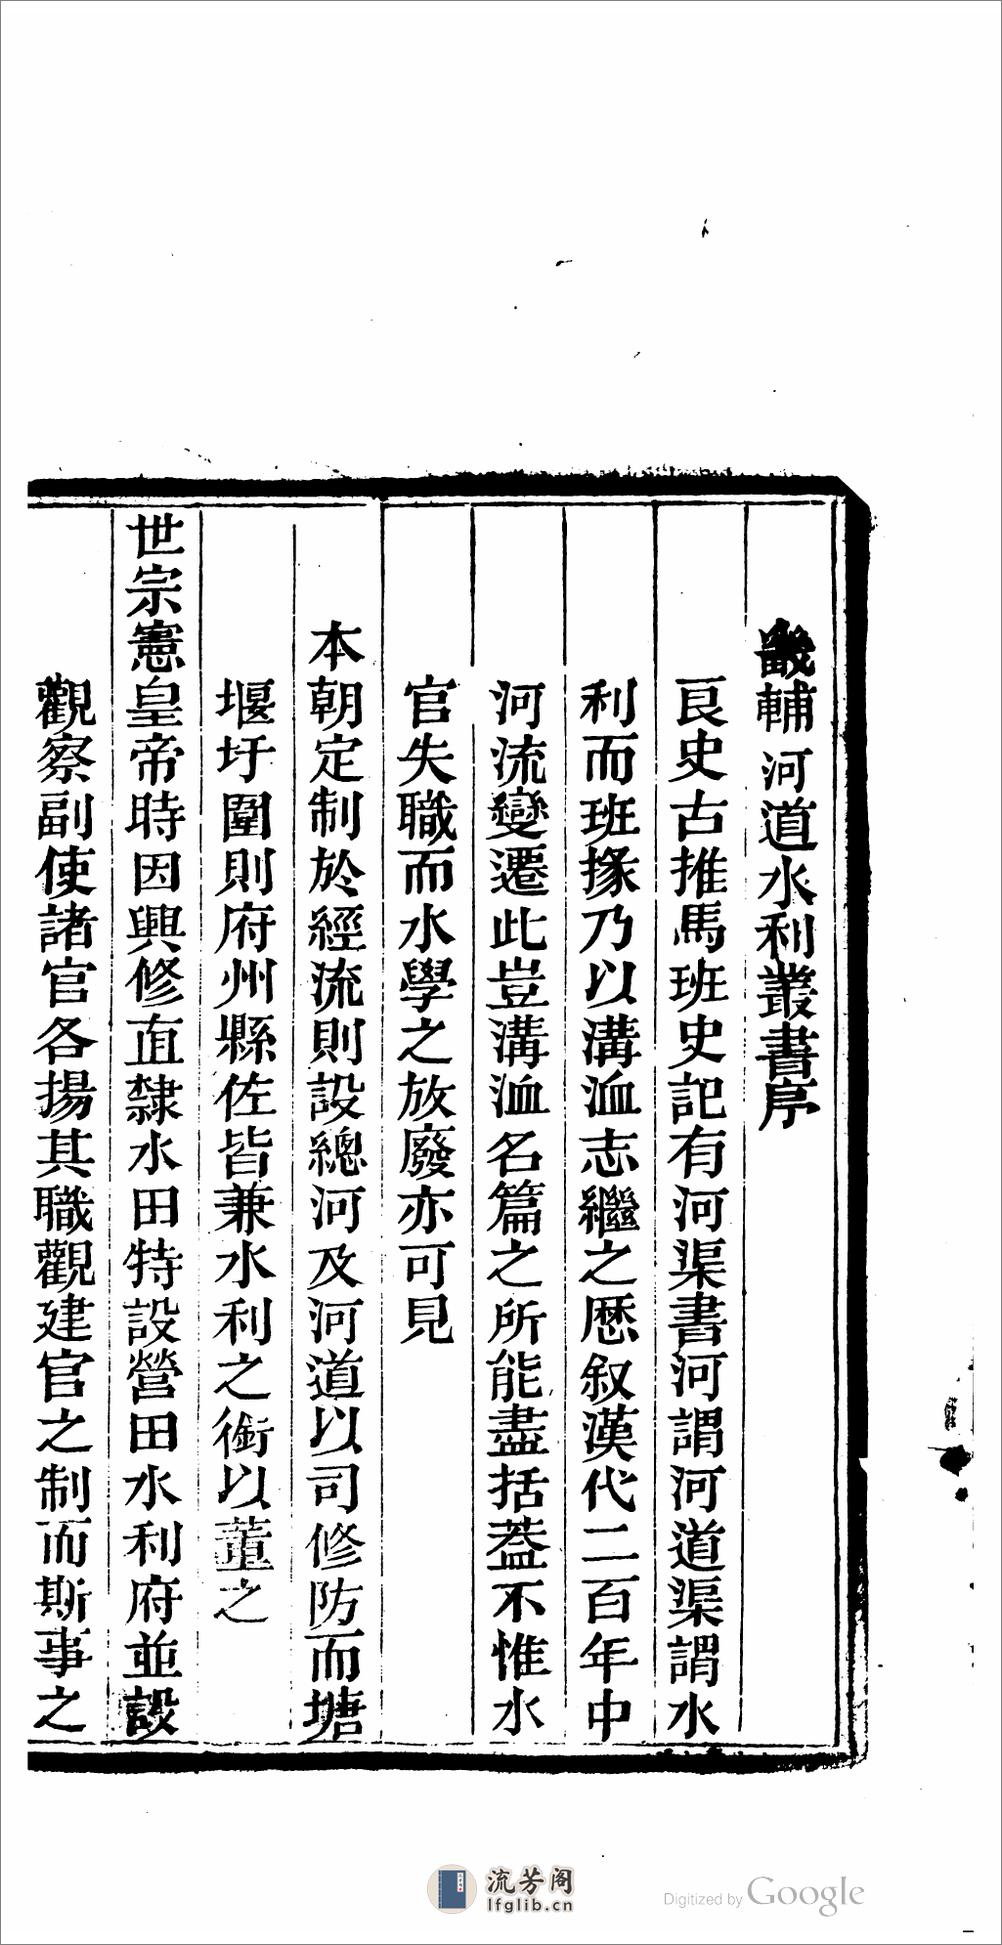 畿輔河道水利叢書序
良史古推馬班史記有河渠書河謂河道渠謂水
利而班掾乃以溝洫志繼之歷叙漢代二百年中
河流變遷此豈溝洫名篇之所能盡括葢不惟水
官失職而水學之放廢亦可見
本朝定制於經流則設總河及河道以司修防而塘
堰圩圍則府州縣佐皆兼水利之銜以董之
世宗憲皇帝時因興修直隸水田特設營田水利府並設
觀察副使諸官各揚其職觀建官之制而斯事之
流芳阁
lfglib.cn
Digitized by Google